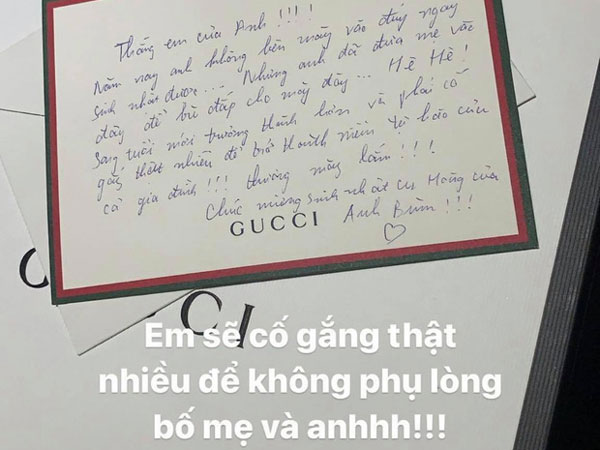 Thằng em của Anh !!!!
Năm nay anh không bên mày vào đúng ngay
sinh nhật được... Nhưng anh đã đưa mẹ vào
đây để bù đắp cho mày đây... Hê Hê!
Sang tuổi mới trưởng thành hơn và phải cố
gắng thật nhiều để trở thành niềm tự hào của
cả gia đình!!! thương mày lắm!!!
Chúc mừng sinh nhật cu Hoàng của
GUCCI
Anh Bùm!!!
CI
Em sẽ cố gắng thật
nhiều để không phụ lòng
bố mẹ và anhhh!!!